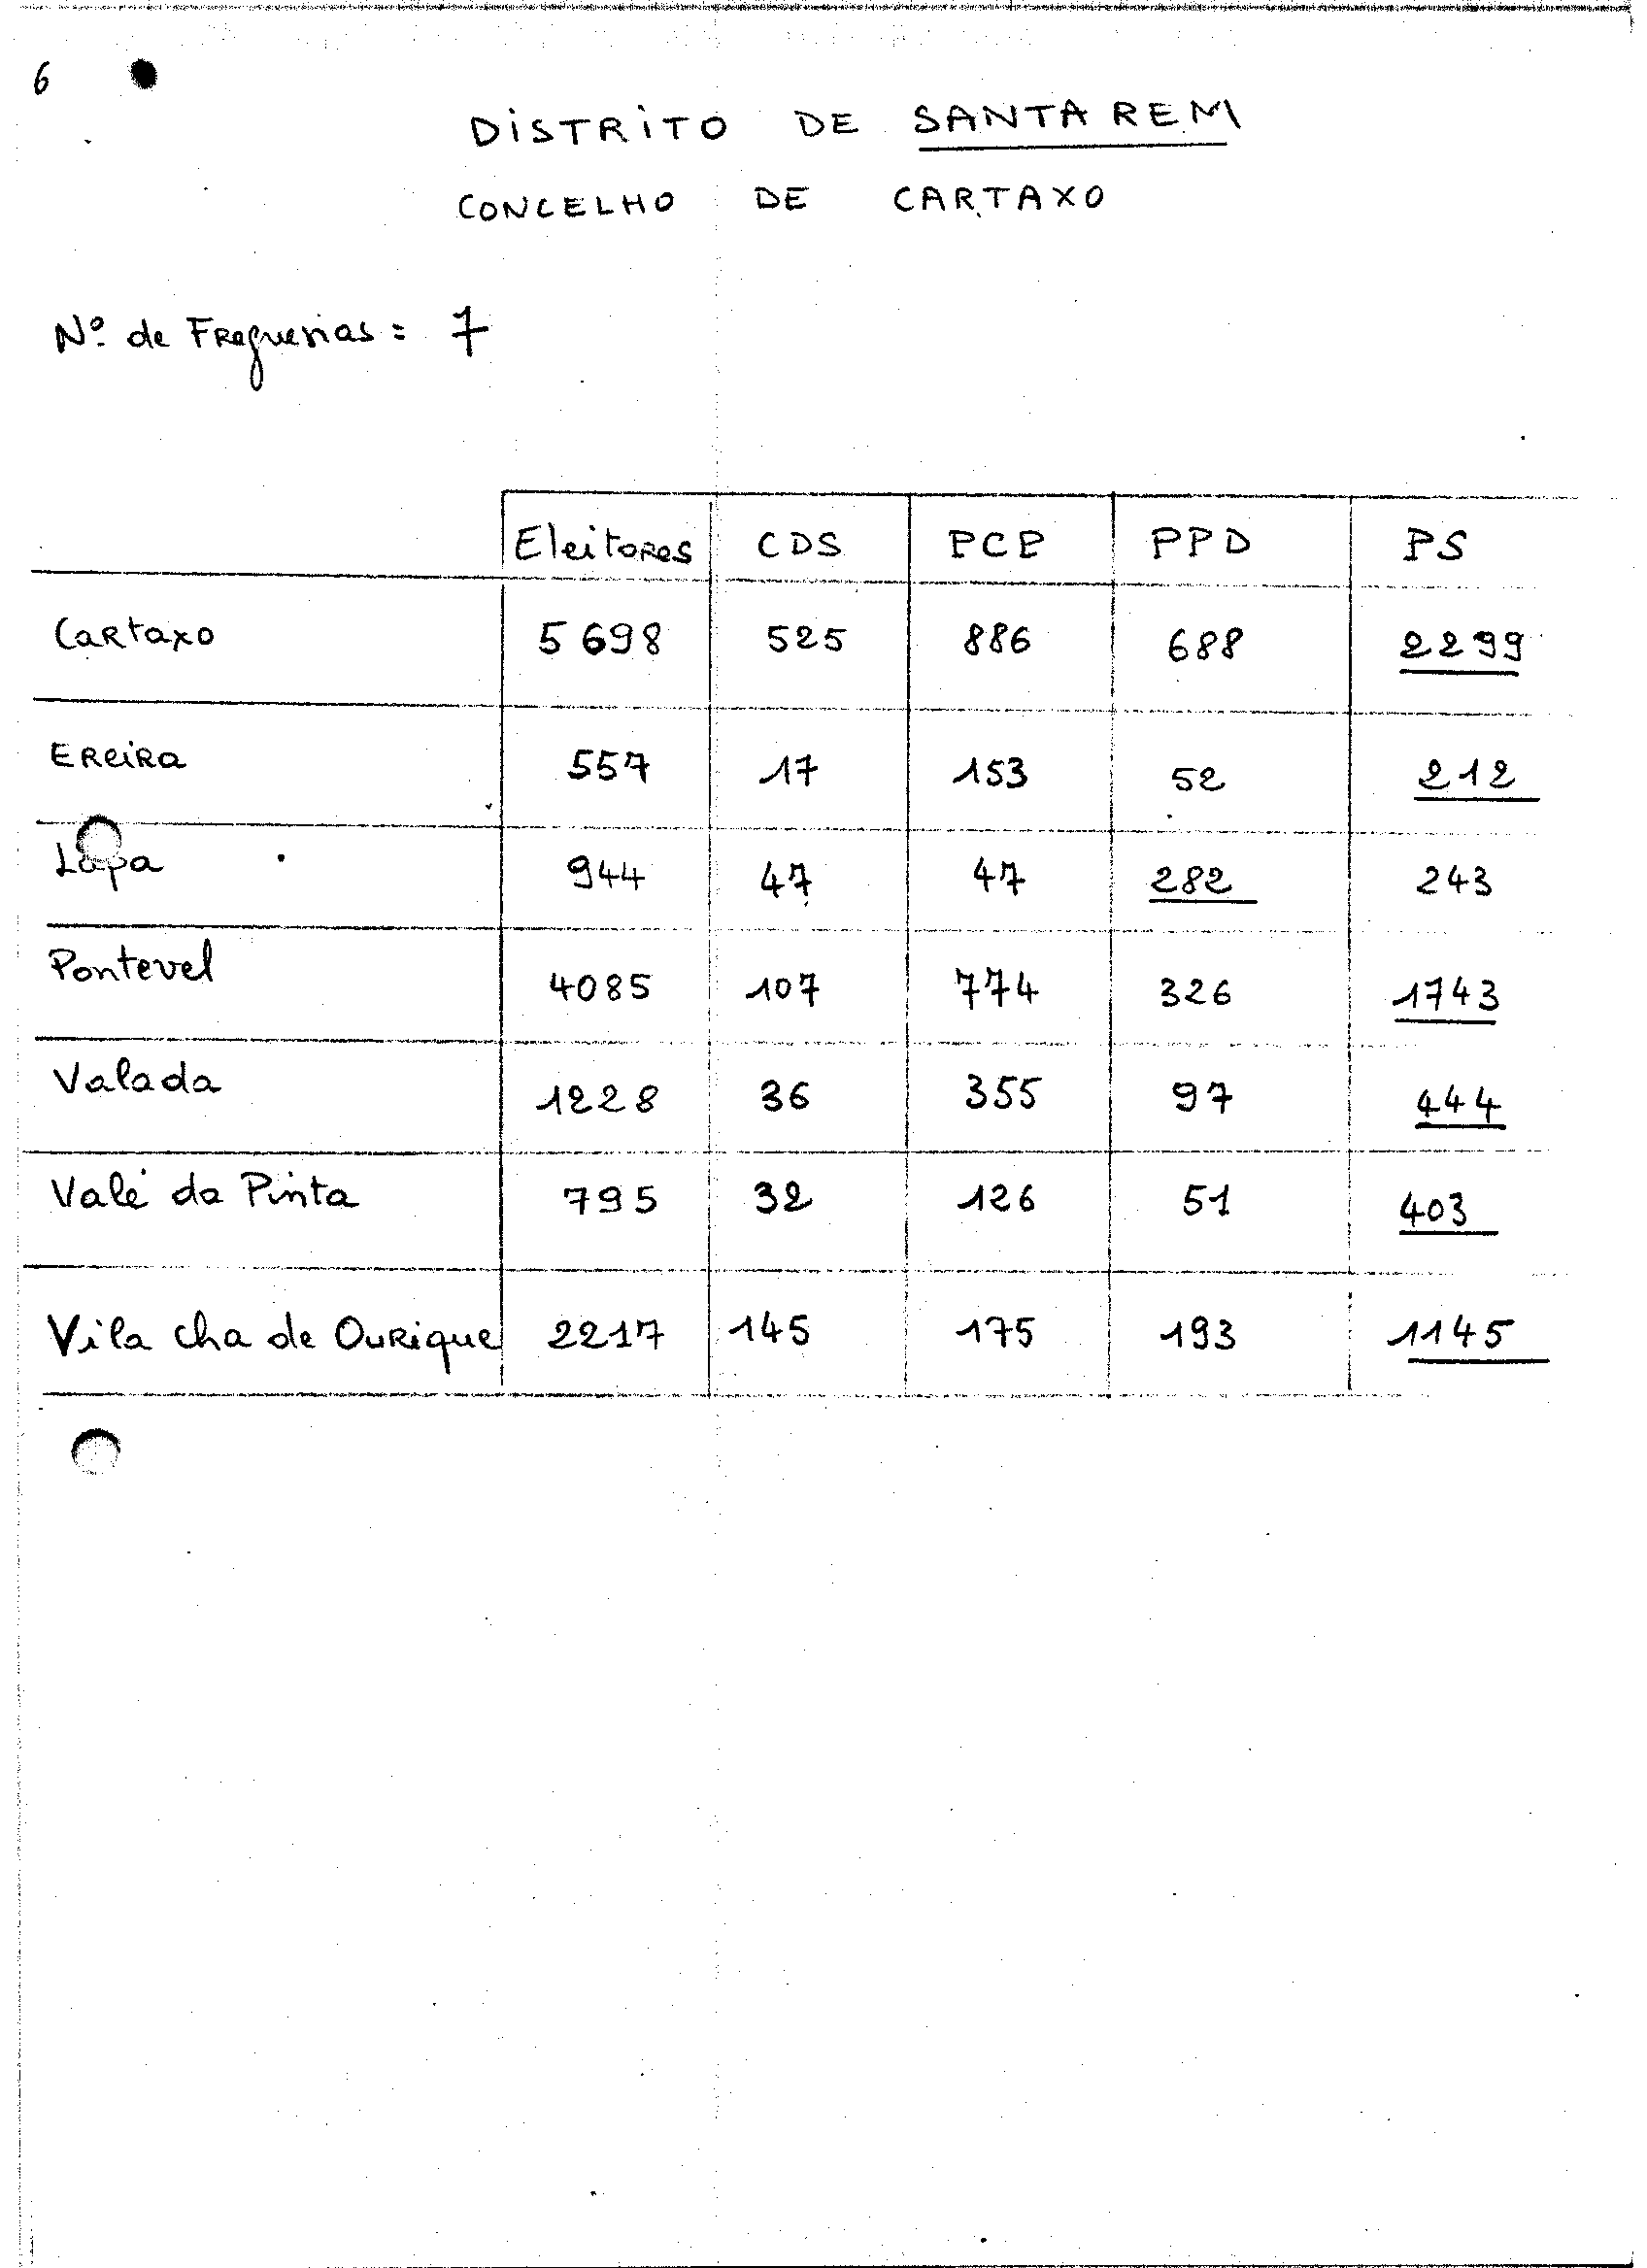 6
DISTRITO DE SANTAREM
CONCELHO DE CARTAXO
Nº de Freguesias = 7
Eleitores CDS PCP PPD PS
Cartaxo 5 698 525 886 688 2299
Ereira 557 17 153 52 212
Lapa 944 47 47 282 243
Pontevel 4085 107 774 326 1743
Valada 1228 36 355 97 444
Vale da Pinta 795 32 126 51 403
Vila cha de Ourique 2217 145 175 193 1145